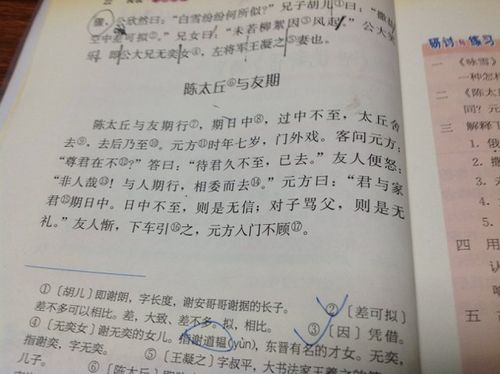 骤，公欣然曰："白雪纷纷何所似？"兄子胡儿①曰："撒盐
空中差可拟②。"兄女曰："未若柳絮因③风起。"公大笑
乐。即公大兄无奕女④，左将军王凝之⑤妻也。
陈太丘⑥与友期
陈太丘与友期行⑦，期日中⑧，过中不至，太丘舍
去⑨，去后乃至⑩。元方⑪时年七岁，门外戏。客问元方：
"尊君在不⑫？"答曰："待君久不至，已去。"友人便怒：
"非人哉⑬！与人期行，相委而去⑭。"元方曰："君与家
君⑮期日中。日中不至，则是无信；对子骂父，则是无
礼。"友人惭，下车引⑯之，元方入门不顾⑰。
①〔胡儿〕即谢朗，字长度，谢安哥哥谢据的长子。 ②〔差可拟〕
差不多可以相比。差，大致、差不多。拟，相比。 ③〔因〕凭借。
④〔无奕女〕谢无奕的女儿。指谢道韫(yùn)，东晋有名的才女。无奕，
指谢奕，字无奕。 ⑤〔王凝之〕字叔平，大书法家王羲之的
儿子。 ⑥〔陈太丘〕即
研讨与练习
一 《咏雪》
一种怎样
二 《陈太
同？元
三 解释
1. 俄
2. 撒
3.
4.
5.
四 用
认
五